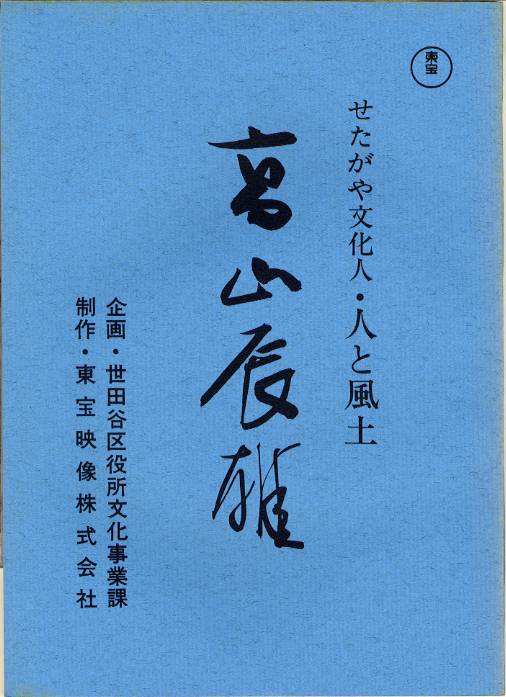 東宝
せたがや文化人・人と風土
高山辰雄
企画・世田谷区役所文化事業課
制作・東宝映像株式会社